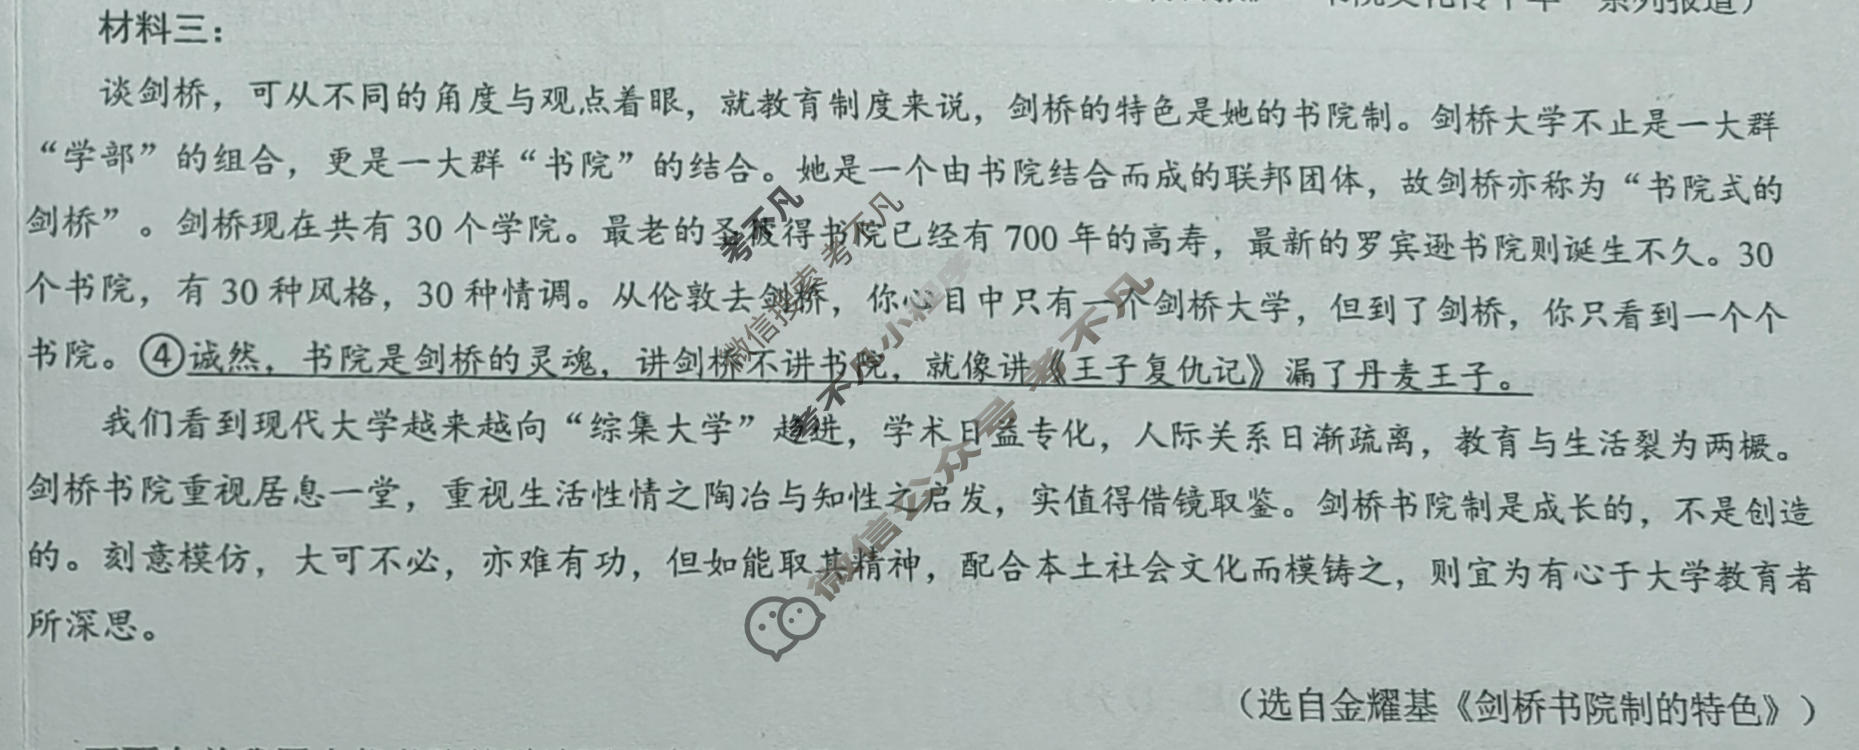 系列报道）
材料三：
谈剑桥，可从不同的角度与观点着眼，就教育制度来说，剑桥的特色是她的书院制。剑桥大学不止是一大群
“学部”的组合，更是一大群“书院”的结合。她是一个由书院结合而成的联邦团体，故剑桥亦称为“书院式的
剑桥”。剑桥现在共有 30 个学院。最老的圣彼得书院已经有 700 年的高寿，最新的罗宾逊书院则诞生不久。30
个书院，有 30 种风格，30 种情调。从伦敦去剑桥，你心目中只有一个剑桥大学，但到了剑桥，你只看到一个个
书院。④诚然，书院是剑桥的灵魂，讲剑桥不讲书院，就像讲《王子复仇记》漏了丹麦王子。
我们看到现代大学越来越向“综集大学”趋进，学术日益专化，人际关系日渐疏离，教育与生活裂为两橛。
剑桥书院重视居息一堂，重视生活性情之陶冶与知性之启发，实值得借镜取鉴。剑桥书院制是成长的，不是创造
的。刻意模仿，大可不必，亦难有功，但如能取其精神，配合本土社会文化而模铸之，则宜为有心于大学教育者
所深思。
（选自金耀基《剑桥书院制的特色》）
考不凡
微信搜索 考不凡
考不凡小程序
微信公众号 考不凡